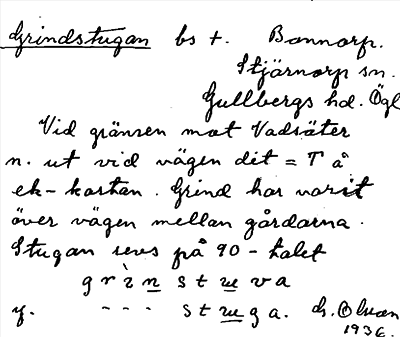 Grindstugan bs t. Bonnorp.
Stjärnorp sn.
Gullbergs hd. Ögl
Vid gränsen mot Vadsäter
n. ut vid vägen dit = T å
ek-kartan. Grind har varit
över vägen mellan gårdarna.
Stugan revs på 90-talet
g r ì n s t u v a
y. - - - s t u g a.
1936.